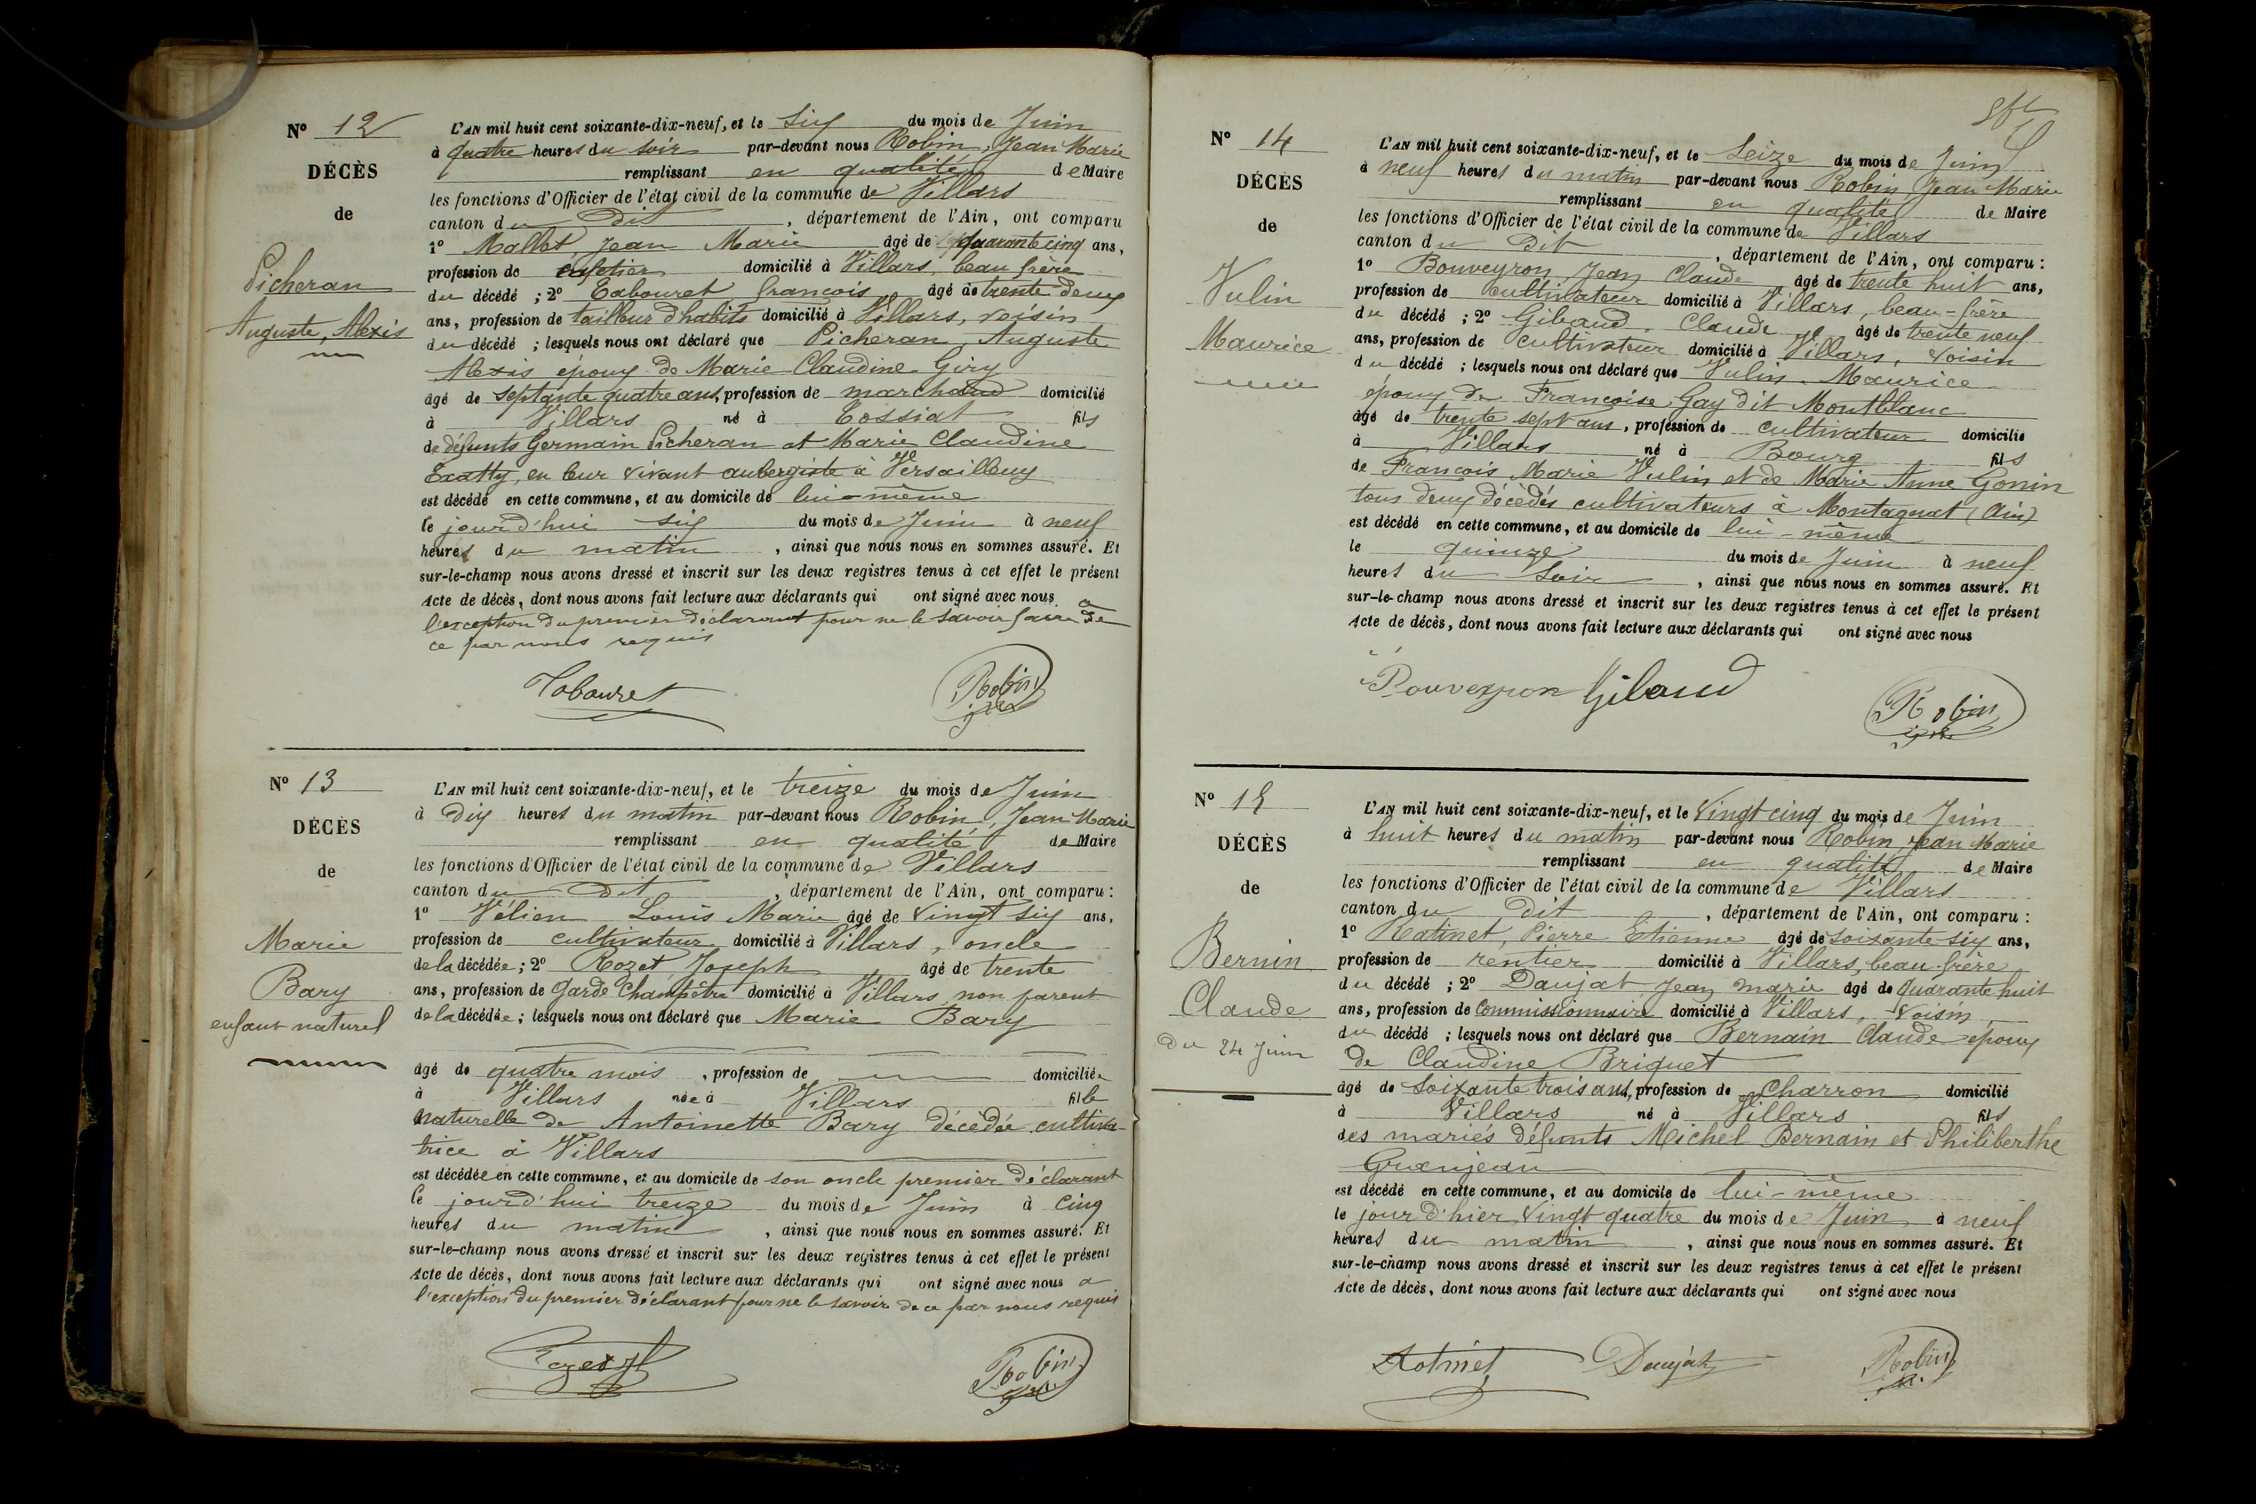 Nº 12
DÉCÈS
de
Picheran
Auguste, Alexis
L'AN mil huit cent soixante-dix-neuf, et le Six du mois de Juin
à quatre heures du soir par-devant nous Robin, Jean Marie
remplissant en qualité de Maire
les fonctions d'Officier de l'état civil de la commune de Villars
canton du Dit, département de l'Ain, ont comparu
1º Mallet Jean Marie âgé de quarante cinq ans,
profession de cafetier domicilié à Villars, beau frère
du décédé ; 2º Tabouret françois âgé de trente deux
ans, profession de tailleur d'habits domicilié à Villars, voisin
du décédé ; lesquels nous ont déclaré que Picheran, Auguste
Alexis époux de Marie Claudine Giry
âgé de septante quatre ans, profession de marchand domicilié
à Villars né à Tossiat fils
de défunts Germain Picheran et Marie Claudine
en leur vivant aubergiste à Versailleux
est décédé en cette commune, et au domicile de lui-même
le jourd'hui six du mois de Juin à neuf
heures du matin, ainsi que nous nous en sommes assuré. Et
sur-le-champ nous avons dressé et inscrit sur les deux registres tenus à cet effet le présent
Acte de décès, dont nous avons fait lecture aux déclarants qui ont signé avec nous a
l'exception du premier déclarant pour ne le savoir faire de
ce par nous requis
Tabouret Robin
Nº 13
DÉCÈS
de
Marie
Bary
enfant naturel
L'AN mil huit cent soixante-dix-neuf, et le treize du mois de Juin
à Dix heures du matin par-devant nous Robin, Jean Marie
remplissant en qualité de Maire
les fonctions d'Officier de l'état civil de la commune de Villars
canton du Dit, département de l'Ain, ont comparu :
1º Vélien Louis Marie âgé de vingt six ans,
profession de cultivateur domicilié à Villars, oncle
de la décédée ; 2º Rozet Joseph âgé de trente
ans, profession de Garde Champêtre domicilié à Villars non parent
de la décédée ; lesquels nous ont déclaré que Marie Bary
âgé de quatre mois, profession de domiciliée
à Villars née à Villars fille
naturelle de Antoinette Bary décédée cultiva-
trice à Villars
est décédée en cette commune, et au domicile de son oncle premier déclarant
le jourd'hui treize du mois de Juin à cinq
heures du matin, ainsi que nous nous en sommes assuré. Et
sur-le-champ nous avons dressé et inscrit sur les deux registres tenus à cet effet le présent
Acte de décès, dont nous avons fait lecture aux déclarants qui ont signé avec nous a
l'exception du premier déclarant pour ne le savoir de ce par nous requis
Rozet Robin
Nº 14
DÉCÈS
de
Vulin
Maurice
L'AN mil huit cent soixante-dix-neuf, et le Seize du mois de Juin
à neuf heures du matin par-devant nous Robin Jean Marie
remplissant en qualité de Maire
les fonctions d'Officier de l'état civil de la commune de Villars
canton du Dit, département de l'Ain, ont comparu :
1º Bouveyron, Jean Claude âgé de trente huit ans,
profession de cultivateur domicilié à Villars, beau-frère
du décédé ; 2º Gibaud Claude âgé de trente neuf
ans, profession de cultivateur domicilié à Villars, voisin
du décédé ; lesquels nous ont déclaré que Vulin Maurice
époux de Françoise Gay dit Montblanc
âgé de trente sept ans, profession de cultivateur domicilié
à Villars né à Bourg fils
de François Marie Vulin et de Marie Anne Gonin
tous deux décédés cultivateurs à Montagnat (Ain)
est décédé en cette commune, et au domicile de lui-même
le quinze du mois de Juin à neuf
heures du Soir, ainsi que nous nous en sommes assuré. Et
sur-le-champ nous avons dressé et inscrit sur les deux registres tenus à cet effet le présent
Acte de décès, dont nous avons fait lecture aux déclarants qui ont signé avec nous
Bouveyron Gibaud Robin
Nº 15
DÉCÈS
de
Bernin
Claude
Du 24 Juin
L'AN mil huit cent soixante-dix-neuf, et le Vingt cinq du mois de Juin
à huit heures du matin par-devant nous Robin Jean Marie
remplissant en qualité de Maire
les fonctions d'Officier de l'état civil de la commune de Villars
canton du Dit, département de l'Ain, ont comparu :
1º Ratinet, Pierre Etienne âgé de soixante-six ans,
profession de rentier domicilié à Villars, beau-frère
du décédé ; 2º Daujat Jean Marie âgé de quarante huit
ans, profession de Commissionnaire domicilié à Villars, voisin
du décédé ; lesquels nous ont déclaré que Bernain Claude époux
de Claudine Briquet
âgé de soixante trois ans, profession de Charron domicilié
à Villars né à Villars fils
des mariés défunts Michel Bernain et Philiberthe
Granjean
est décédé en cette commune, et au domicile de lui-même
le jour d'hier vingt quatre du mois de Juin à neuf
heures du matin, ainsi que nous nous en sommes assuré. Et
sur-le-champ nous avons dressé et inscrit sur les deux registres tenus à cet effet le présent
Acte de décès, dont nous avons fait lecture aux déclarants qui ont signé avec nous
Ratinet Daujat Robin